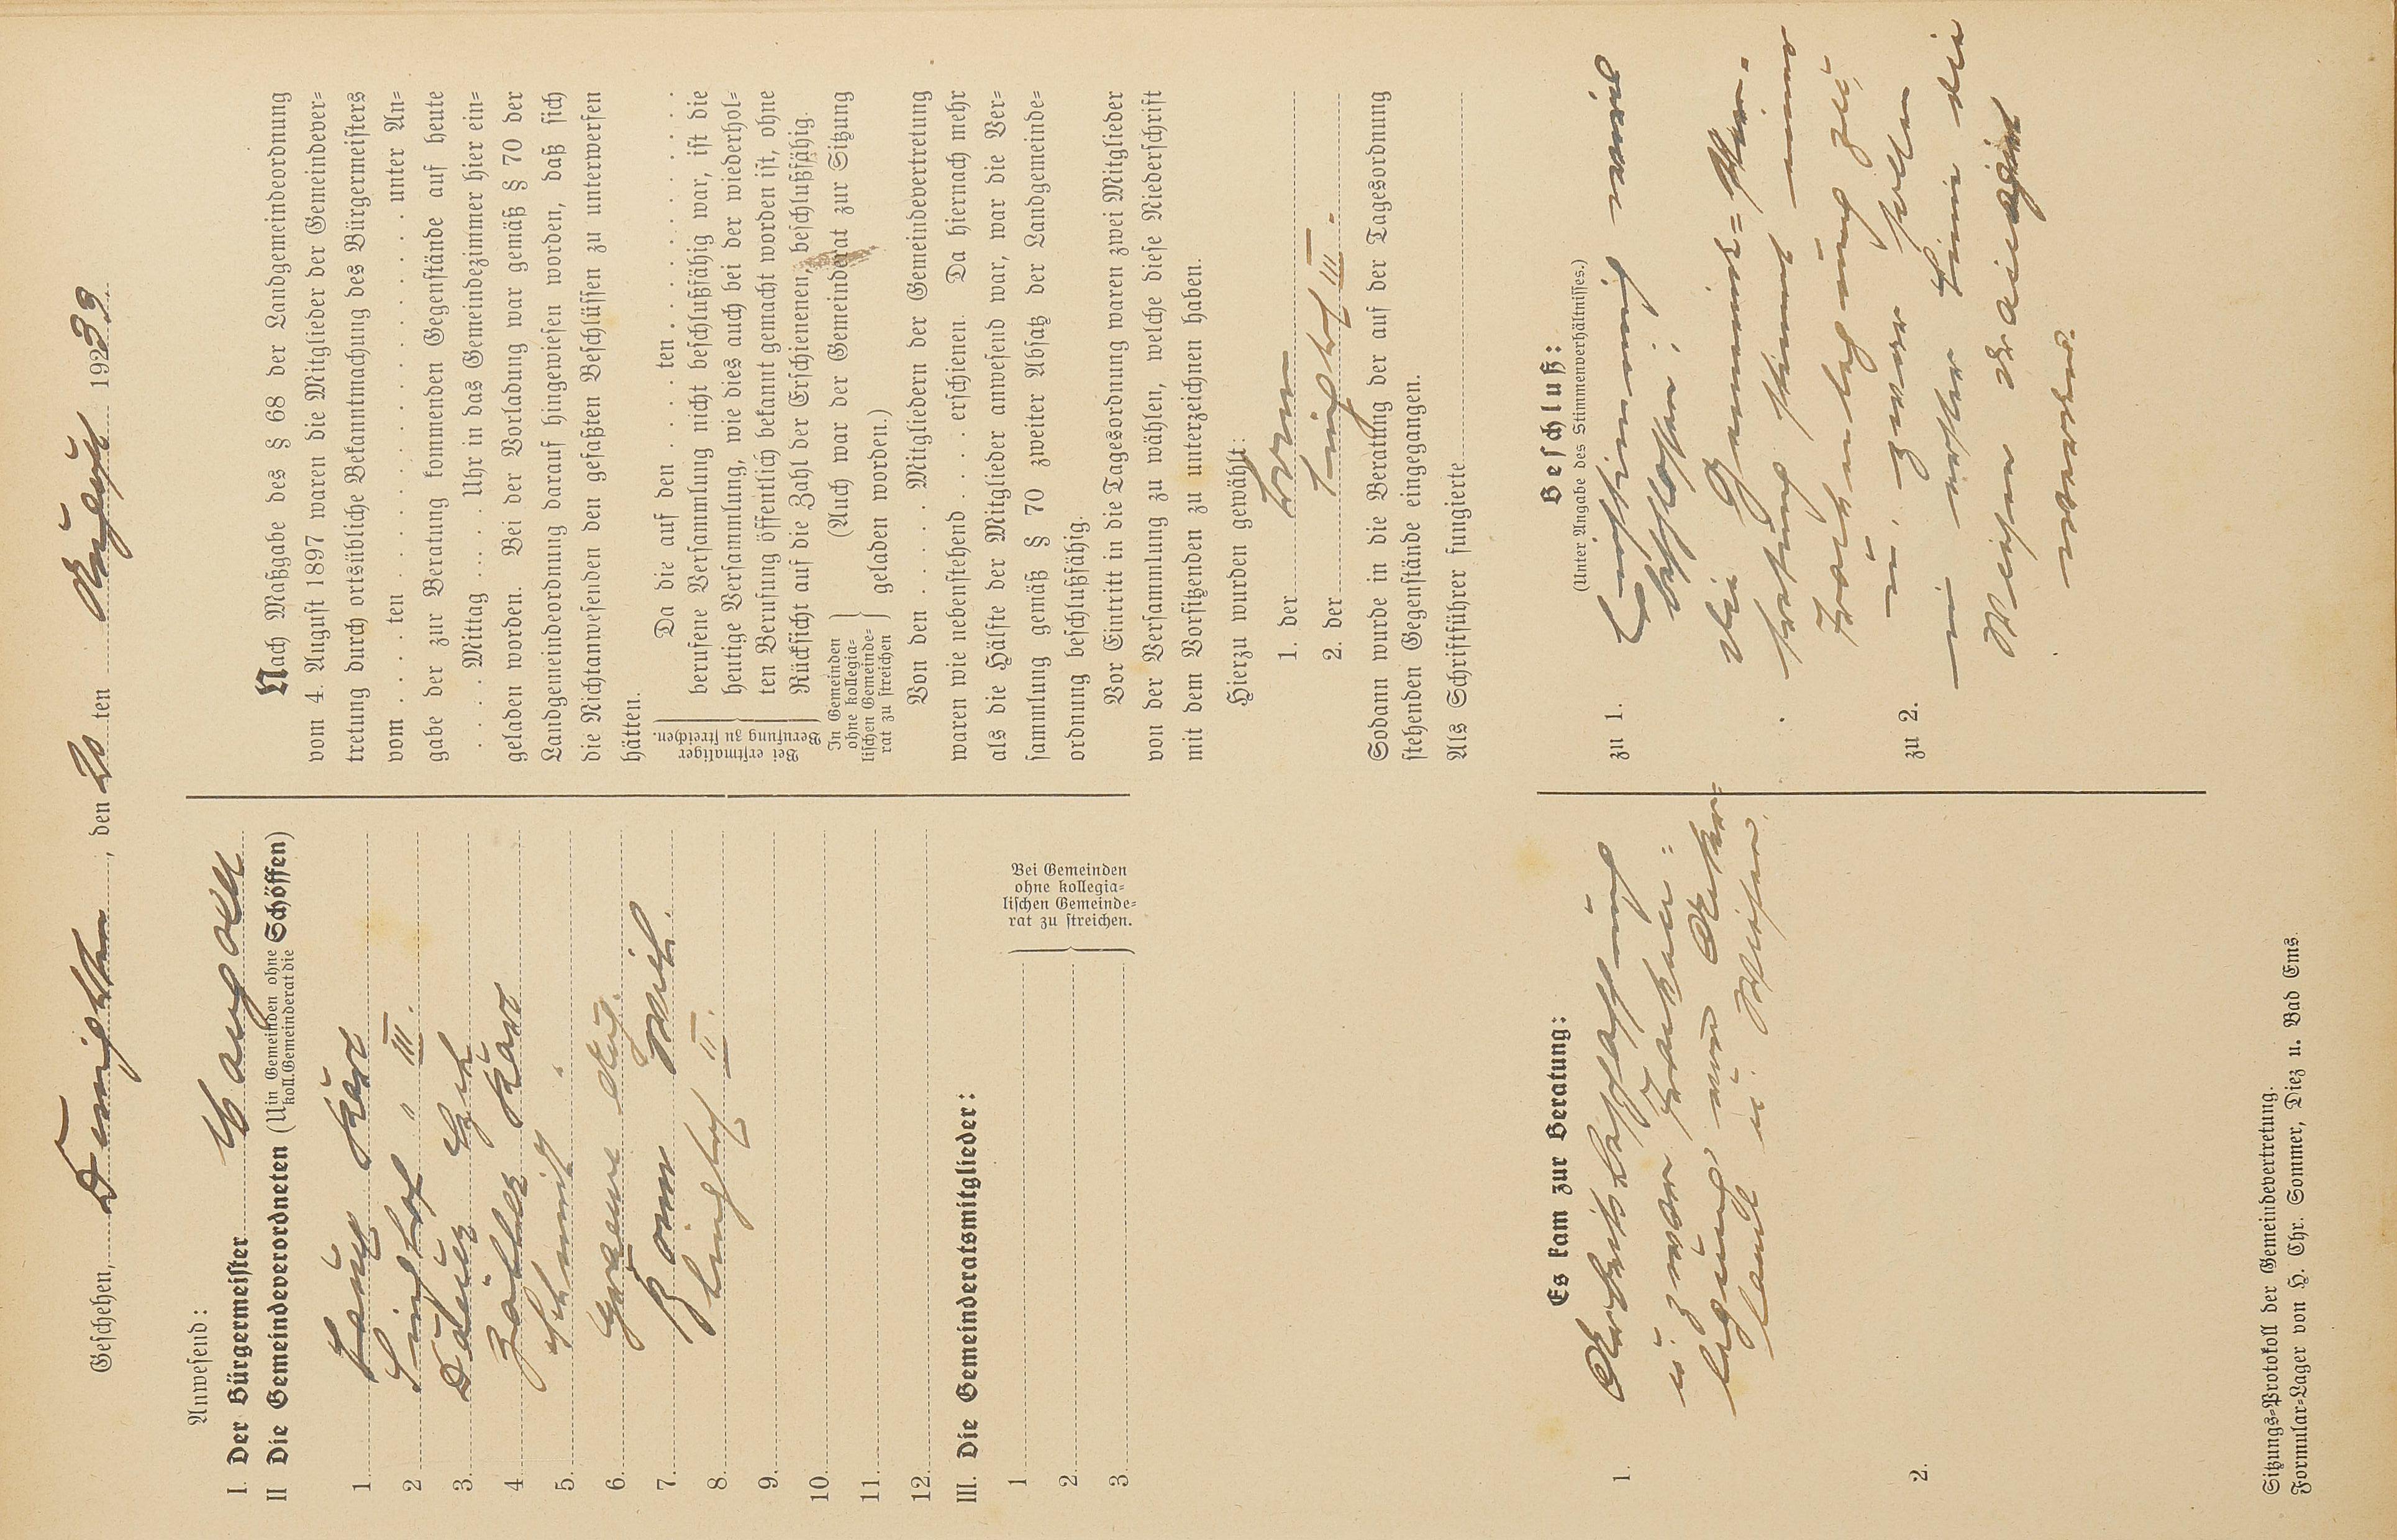 Geschehen, Dünighten, den 20 ten August 1939
Anwesend:
I. Der Bürgermeister Langolf
II Die Gemeindeverordneten (U in Gemeinden ohne koll. Gemeinderat die Schöffen)
1. Lang Kurt
2 Singhof " III.
3. Dalüz
4 Zöller Karl
5. Schmidt "
6. Gräew Aug.
7. Bonn Wilh.
8. Singhof II.
9.
10.
11.
12.
III. Die Gemeinderatsmitglieder:
1
2.
3.
Bei Gemeinden
ohne kollegia-
lischen Gemeinde-
rat zu streichen.
Nach Maßgabe des § 68 der Landgemeindeordnung
vom 4. August 1897 waren die Mitglieder der Gemeindever-
tretung durch ortsübliche Bekanntmachung des Bürgermeisters
vom . . . ten . . . . . . . . . . . . . . . . unter An-
gabe der zur Beratung kommenden Gegenstände auf heute
. . . . Mittag . . . . Uhr in das Gemeindezimmer hier ein-
geladen worden. Bei der Vorladung war gemäß § 70 der
Landgemeindeordnung darauf hingewiesen worden, daß sich
die Nichtanwesenden den gefaßten Beschlüssen zu unterwerfen
hätten.
Bei erstmaliger
Berufung zu streichen.
Da die auf den . . . . . ten . . . . . . . . . . . . . .
berufene Versammlung nicht beschlußfähig war, ist die
heutige Versammlung, wie dies auch bei der wiederhol-
ten Berufung öffentlich bekannt gemacht worden ist, ohne
Rücksicht auf die Zahl der Erschienenen, beschlußfähig.
In Gemeinden
ohne kollegia-
lischen Gemeinde-
rat zu streichen
(Auch war der Gemeinderat zur Sitzung
geladen worden.)
Von den . . . . . Mitgliedern der Gemeindevertretung
waren wie nebenstehend . . . . erschienen. Da hiernach mehr
als die Hälfte der Mitglieder anwesend war, war die Ver-
sammlung gemäß § 70 zweiter Absatz der Landgemeinde-
ordnung beschlußfähig.
Vor Eintritt in die Tagesordnung waren zwei Mitglieder
von der Versammlung zu wählen, welche diese Niederschrift
mit dem Vorsitzenden zu unterzeichnen haben.
Hierzu wurden gewählt:
1. der Bonn
2. der Singhof III.
Sodann wurde in die Beratung der auf der Tagesordnung
stehenden Gegenstände eingegangen.
Als Schriftführer fungierte
Es kam zur Beratung:
1. Arbeitsbeschaffung
u. zwar Trocken-
legung von Acker-
land u. Wiesen.
2.
Beschluß:
(Unter Angabe des Stimmenverhältnisses.)
zu 1. Einstimmig wird
beschlossen:
Die Gemeinde-Ver-
tretung stimmt einer
Trockenlegung zu
u. zwar sollen
zu 2. in erster Linie die
Wiesen drainiert
werden.
Sitzungs-Protokoll der Gemeindevertretung.
Formular-Lager von H. Chr. Sommer, Diez u. Bad Ems